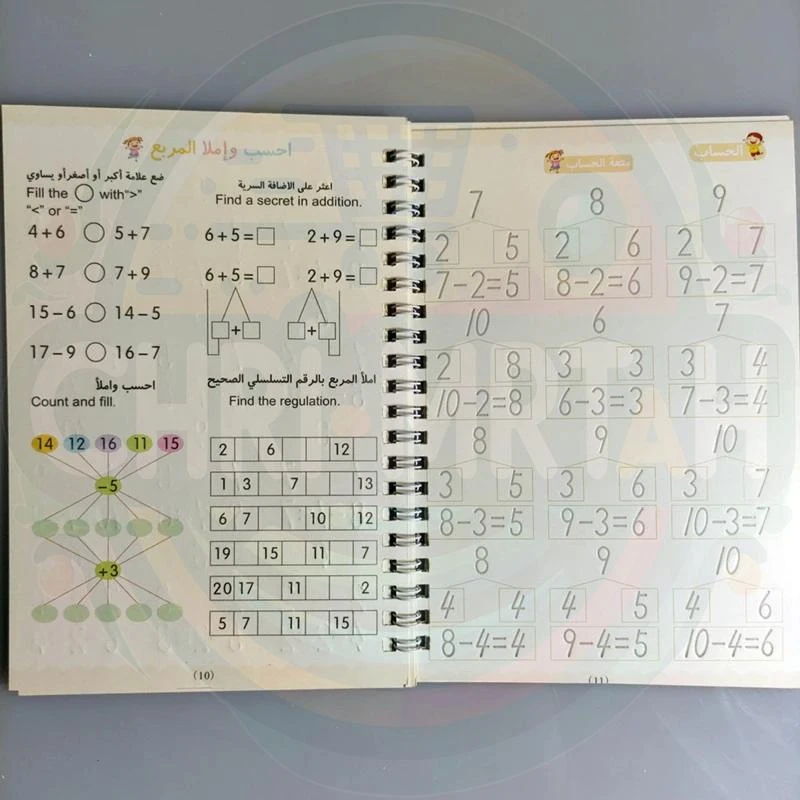 احسب وإملا المربع
ضع علامة أكبر أو أصغرأو يساوي
Fill the ◯ with">"
"<" or "="
4+6 ◯ 5+7
8+7 ◯ 7+9
15−6 ◯ 14−5
17−9 ◯ 16−7
اعثر على الاضافة السرية
Find a secret in addition.
6+5=□ 2+9=□
6+5=□ 2+9=□
□+□ □+□
احسب واملأ
Count and fill.
14 12 16 11 15
−5
+3
املأ المربع بالرقم التسلسلي الصحيح
Find the regulation.
2 6 12
1 3 7 13
6 7 10 12
19 15 11 7
20 17 11 2
5 7 11 15
(10)
الحساب
متعة الحساب
7 8 9
2 5 2 6 2 7
7−2=5 8−2=6 9−2=7
10 6 7
2 8 3 3 3 4
10−2=8 6−3=3 7−3=4
8 9 10
3 5 3 6 3 7
8−3=5 9−3=6 10−3=7
8 9 10
4 4 4 5 4 6
8−4=4 9−4=5 10−4=6
(11)